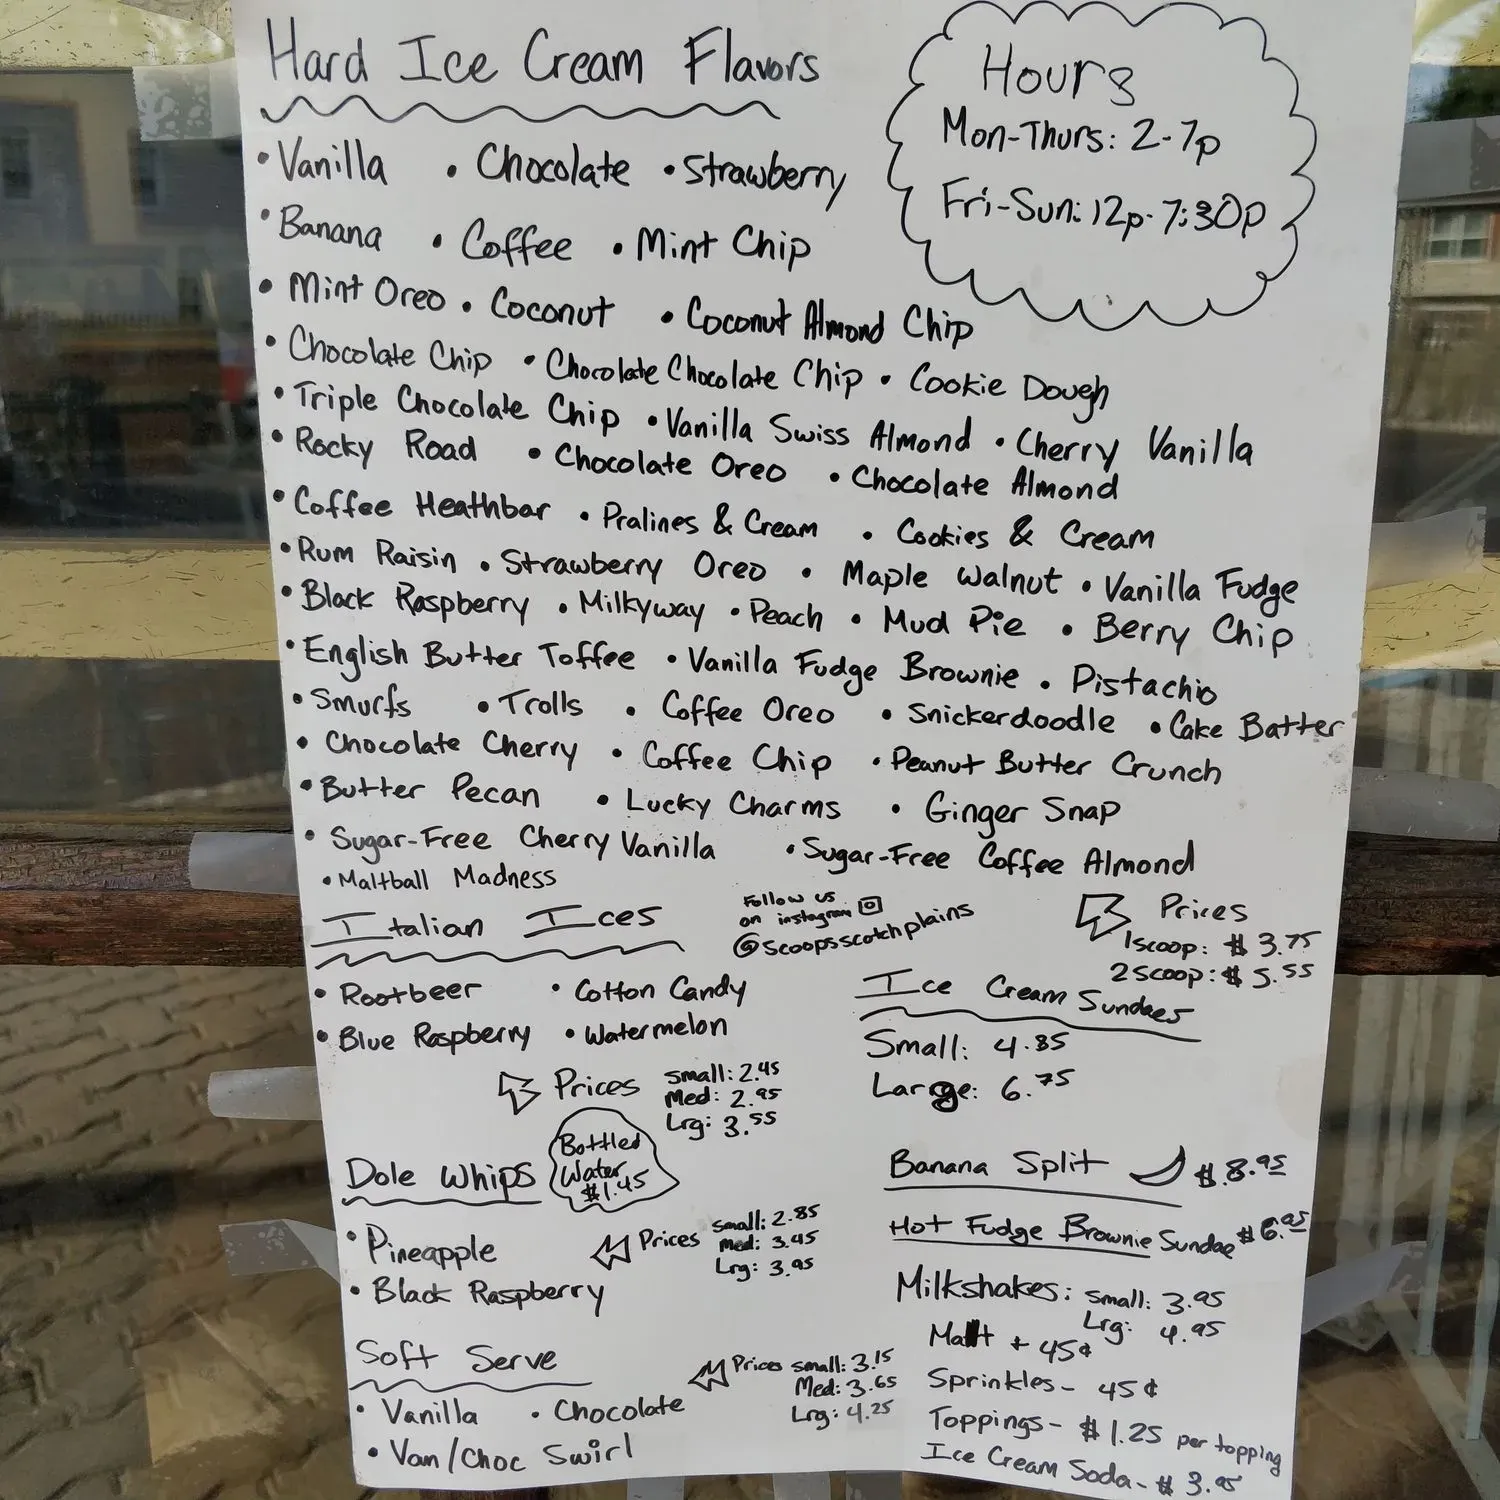 Hard Ice Cream Flavors
Hours
Mon-Thurs: 2-7p
Fri-Sun: 12p-7:30p
• Vanilla • Chocolate • Strawberry
• Banana • Coffee • Mint Chip
• Mint Oreo • Coconut • Coconut Almond Chip
• Chocolate Chip • Chocolate Chocolate Chip • Cookie Dough
• Triple Chocolate Chip • Vanilla Swiss Almond • Cherry Vanilla
• Rocky Road • Chocolate Oreo • Chocolate Almond
• Coffee Heathbar • Pralines & Cream • Cookies & Cream
• Rum Raisin • Strawberry Oreo • Maple Walnut • Vanilla Fudge
• Black Raspberry • Milkyway • Peach • Mud Pie • Berry Chip
• English Butter Toffee • Vanilla Fudge Brownie • Pistachio
• Smurfs • Trolls • Coffee Oreo • Snickerdoodle • Cake Batter
• Chocolate Cherry • Coffee Chip • Peanut Butter Crunch
• Butter Pecan • Lucky Charms • Ginger Snap
• Sugar-Free Cherry Vanilla • Sugar-Free Coffee Almond
• Maltball Madness
Prices
1 scoop: $3.75
2 scoop: $5.55
Follow us
on instagram
@scoopsscotchplains
Italian Ices
• Rootbeer • Cotton Candy
• Blue Raspberry • Watermelon
Prices small: 2.45
Med: 2.95
Lrg: 3.55
Bottled
Water
$1.45
Dole Whips
• Pineapple
• Black Raspberry
Prices small: 2.85
Med: 3.45
Lrg: 3.95
Soft Serve
• Vanilla • Chocolate
• Van/Choc Swirl
Prices small: 3.15
Med: 3.65
Lrg: 4.25
Ice Cream Sundaes
Small: 4.85
Large: 6.75
Banana Split $8.95
Hot Fudge Brownie Sundae $6.95
Milkshakes: small: 3.95
Lrg: 4.95
Malt + 45¢
Sprinkles - 45¢
Toppings - $1.25 per topping
Ice Cream Soda - $3.95